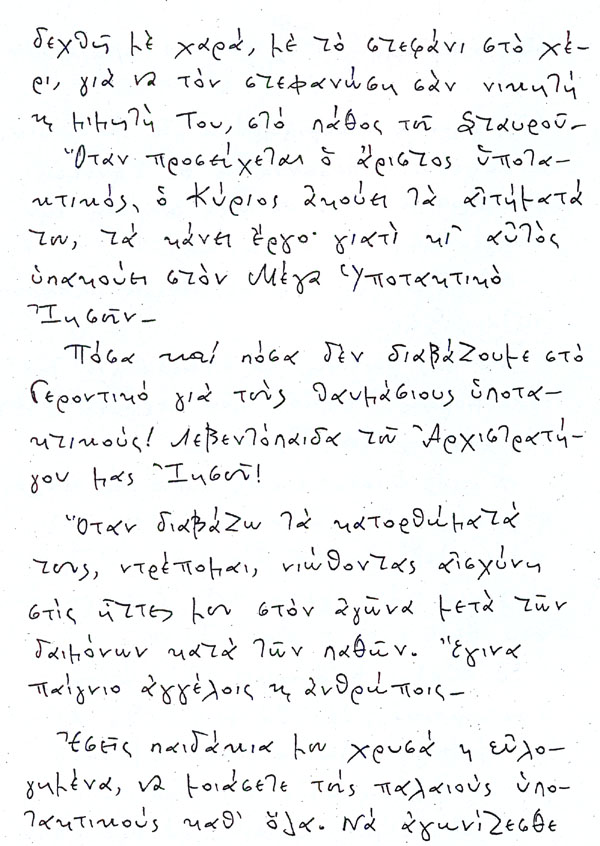 δεχθῆ μὲ χαρά, μὲ τὸ στεφάνι στὸ χέ-
ρι, γιὰ νὰ τὸν στεφανώση σὰν νικητή
κ μιμητὴ Του, στὸ πάθος τοῦ Σταυροῦ-
Ὅταν προσεύχεται ὁ ἄριστος ὑποτα-
κτικός, ὁ Κύριος ἀκούει τὰ αἰτήματά
του, τὰ κάνει ἔργο· γιατὶ κι᾿ αὐτὸς
ὑπακούει στὸν Μέγα Ὑποτακτικὸ
Ἰησοῦν-
Πόσα καί πόσα δὲν διαβάζουμε στὸ
Γεροντικό γιὰ τοὺς θαυμάσιους ὑποτα-
κτικούς! Λεβεντόπαιδα τοῦ Ἀρχιστρατή-
γου μας Ἰησοῦ!
Ὅταν διαβάζω τὰ κατορθώματά
τους, ντρέπομαι, νιώθοντας αἰσχύνη
στὶς ἧττες μου στὸν ἀγῶνα μετὰ τῶν
δαιμόνων κατὰ τῶν παθῶν. Ἔγινα
παίγνιο ἀγγέλοις κ ἀνθρώποις-
Ἐσεῖς παιδάκια μου χρυσά κ εὐλο-
γημένα, νὰ μοιάσετε τοὺς παλαιοὺς ὑπο-
τακτικοὺς καθ᾿ ὅλα. Νά ἀγωνίζεσθε